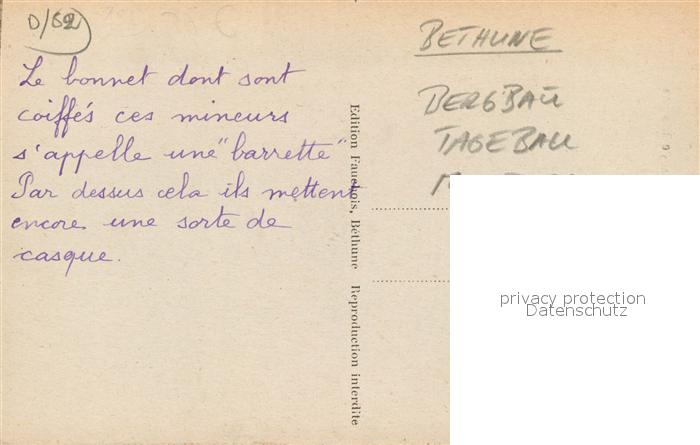 D/62
Le bonnet dont sont
coiffés ces mineurs
s'appelle une "barrette"
Par dessus cela ils mettent
encore une sorte de
casque.
Edition Fauchois, Béthune Reproduction interdite
BETHUNE
BERGBAU
TAGEBAU
privacy protection
Datenschutz